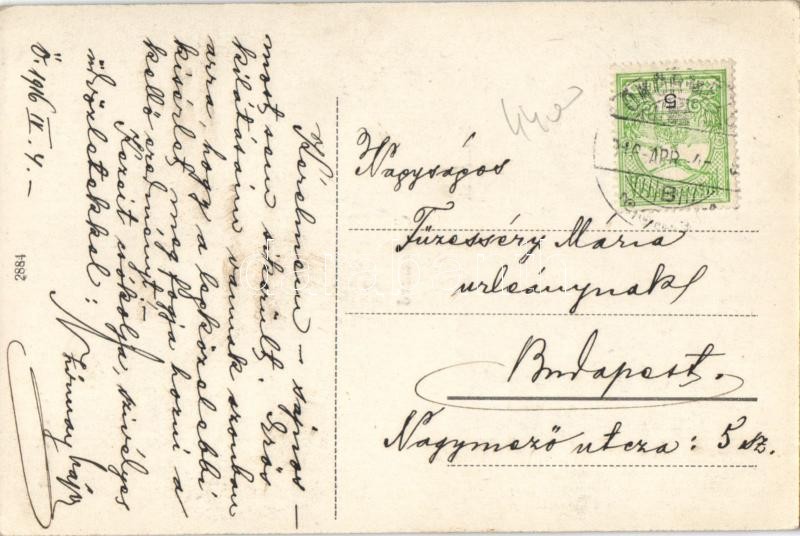 Kérelmem – sajnos –
most sem sikerült. Erős
kilátásaim vannak azonban
arra, hogy a legközelebbi
kisérlet meg fogja hozni a
kellő eredményt! –
Kezeit csókolja, szivélyes
üdvözletekkel:
Ő. 1916 IV. 4. –
2884
Nagyságos
Füzesséry Mária
urleánynak
Budapest.
Nagymező utcza: 5 sz.
5
916 APR -4
B